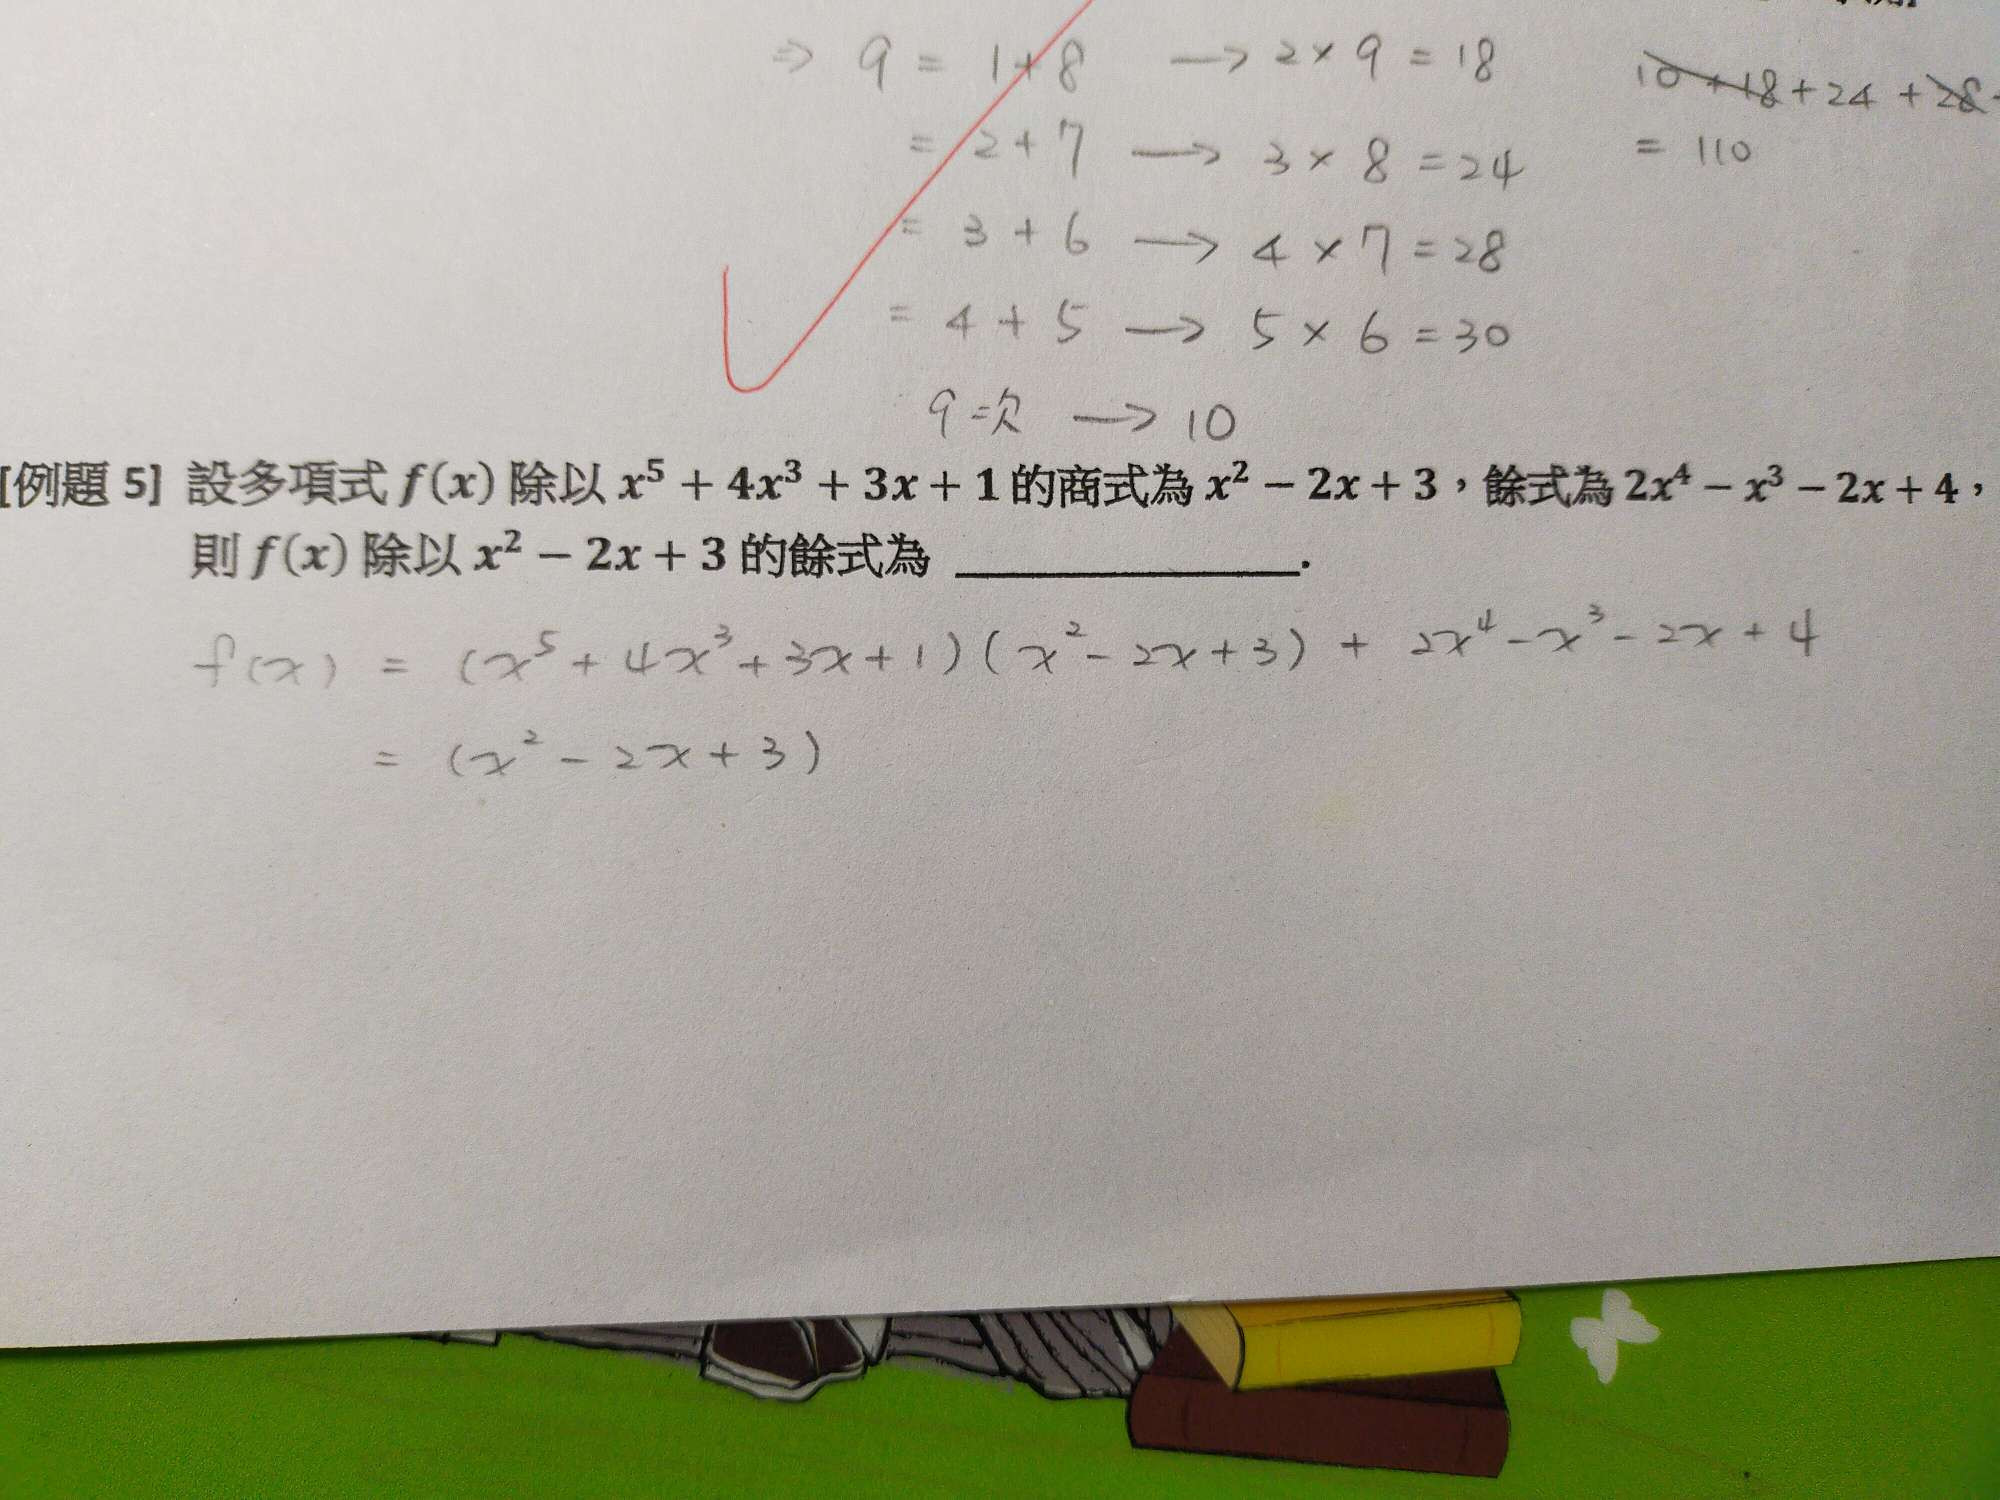 ⇒ 9 = 1+8 → 2×9 = 18
= 2+7 → 3×8 = 24
= 3+6 → 4×7 = 28
= 4+5 → 5×6 = 30
9 = 次 → 10
10+18+24+28+
= 110
[例題 5] 設多項式 f(x) 除以 x⁵ + 4x³ + 3x + 1 的商式為 x² − 2x + 3，餘式為 2x⁴ − x³ − 2x + 4，
則 f(x) 除以 x² − 2x + 3 的餘式為 ____________.
f(x) = (x⁵ + 4x³ + 3x + 1)(x² − 2x + 3) + 2x⁴ − x³ − 2x + 4
= (x² − 2x + 3)